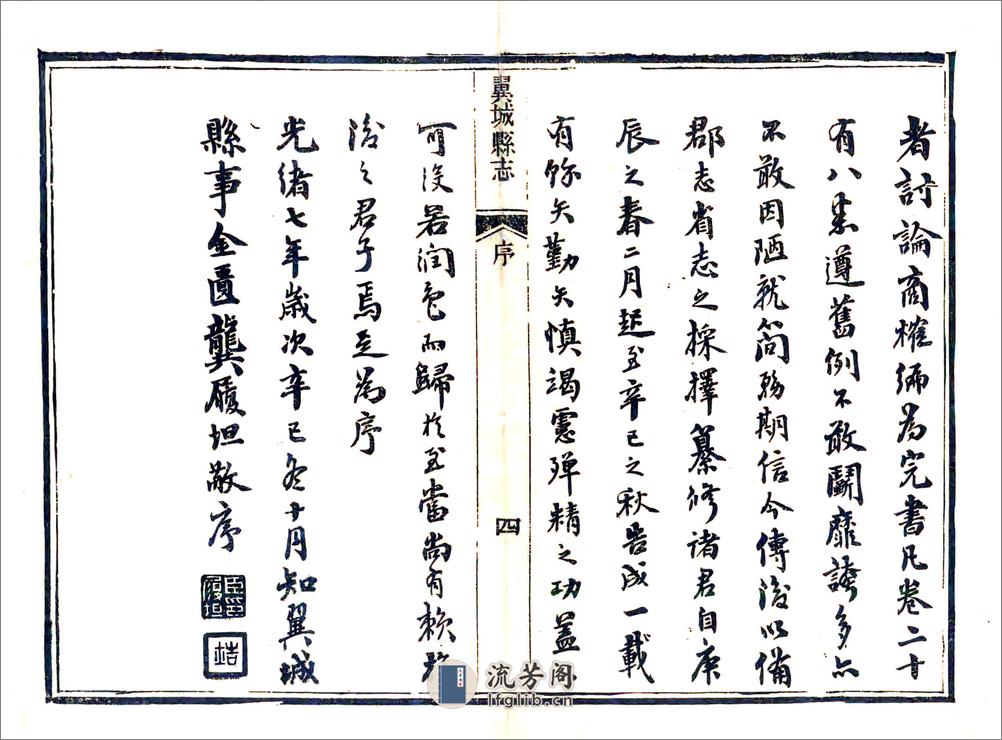 者討論商榷編為完書凡卷二十
有八悉遵舊例不敢鬭靡誇多亦
不敢因陋就简務期信今傳後以備
郡志省志之採擇纂修諸君自庚
辰之春二月起至辛巳之秋告成一載
有餘矣勤矣慎竭慮殫精之功蓋
翼城縣志
序
四
可沒若潤色而歸於至當尚有賴於
後之君子焉是為序
光緒七年歲次辛巳冬十月知翼城
縣事金匱龔履坦敬序
流芳阁
lfglib.cn